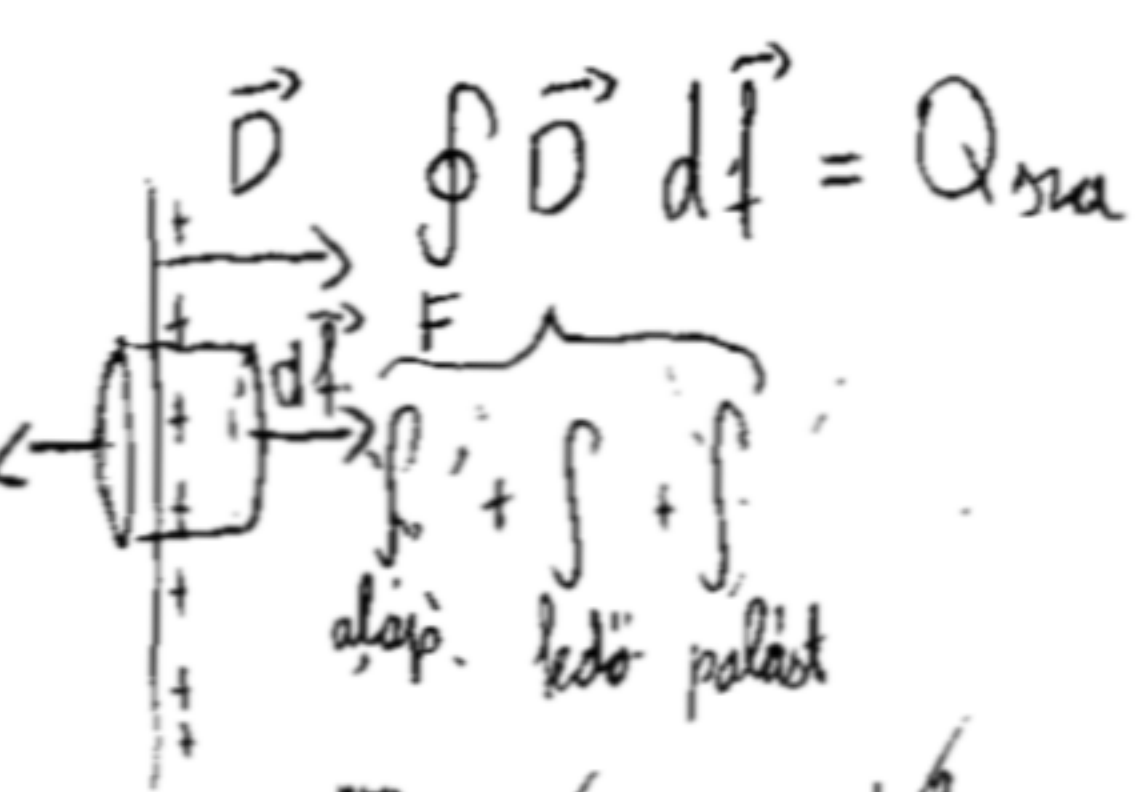 D⃗ ∮ D⃗ df⃗ = Q
F
df⃗
∫ + ∫ + ∫
alap fedő palást
+
+
+
+
+
+
+